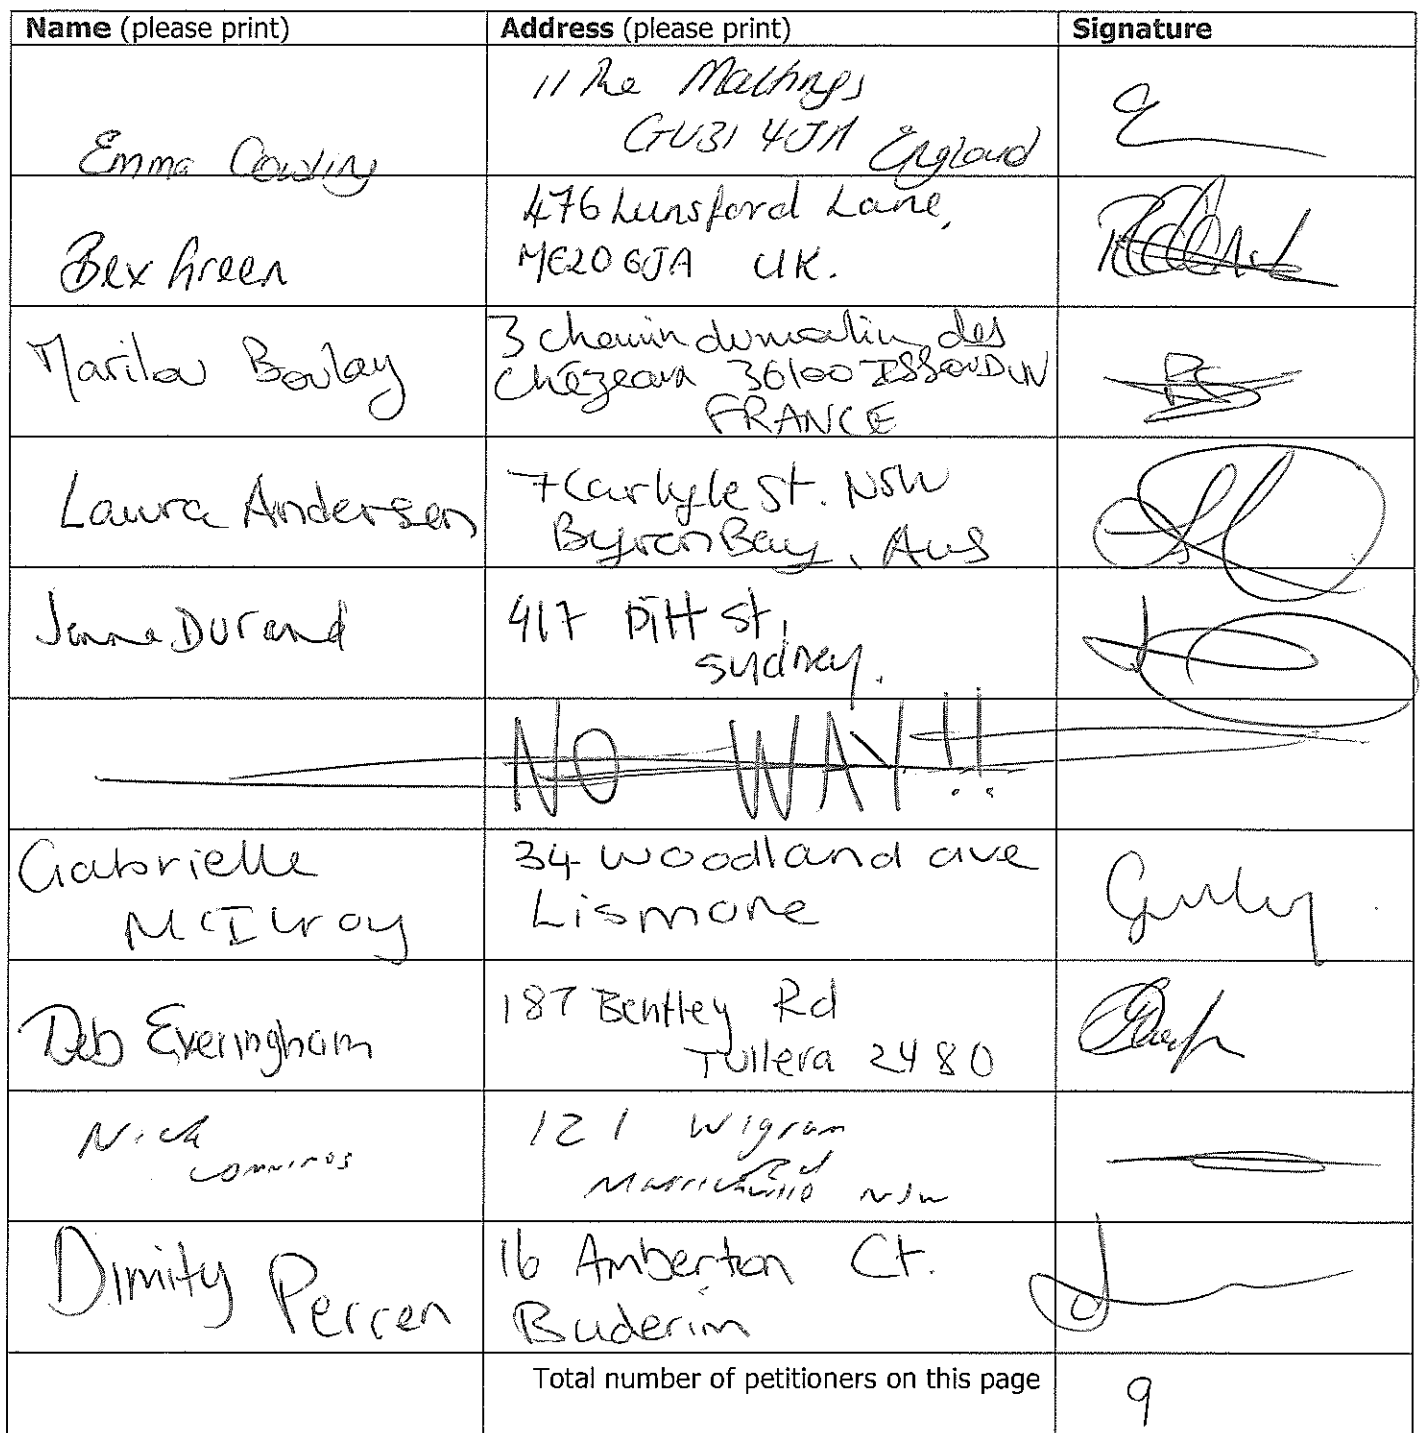 Name (please print) Address (please print) Signature
11 The Malthngs
GU31 4JA England
Emma Cowling
476 Lunsford Lane,
ME20 6JA UK.
Bex Green
Marilou Boulay
3 chemin du moulin des
Chézeaux 36100 ISSOUDUN
FRANCE
Laura Andersen
7 Carlyle St. NSW
Byron Bay, Aus
Jenna Durand
417 Pitt St,
Sydney.
NO WAY!!
Gabrielle
McIlroy
34 Woodland ave
Lismore
Deb Everingham
187 Bentley Rd
Tullera 2480
Nick
Comninos
121 Wigram
Rd
Marrickville NSW
Dimity Perren
16 Amberton Ct.
Buderim
Total number of petitioners on this page 9